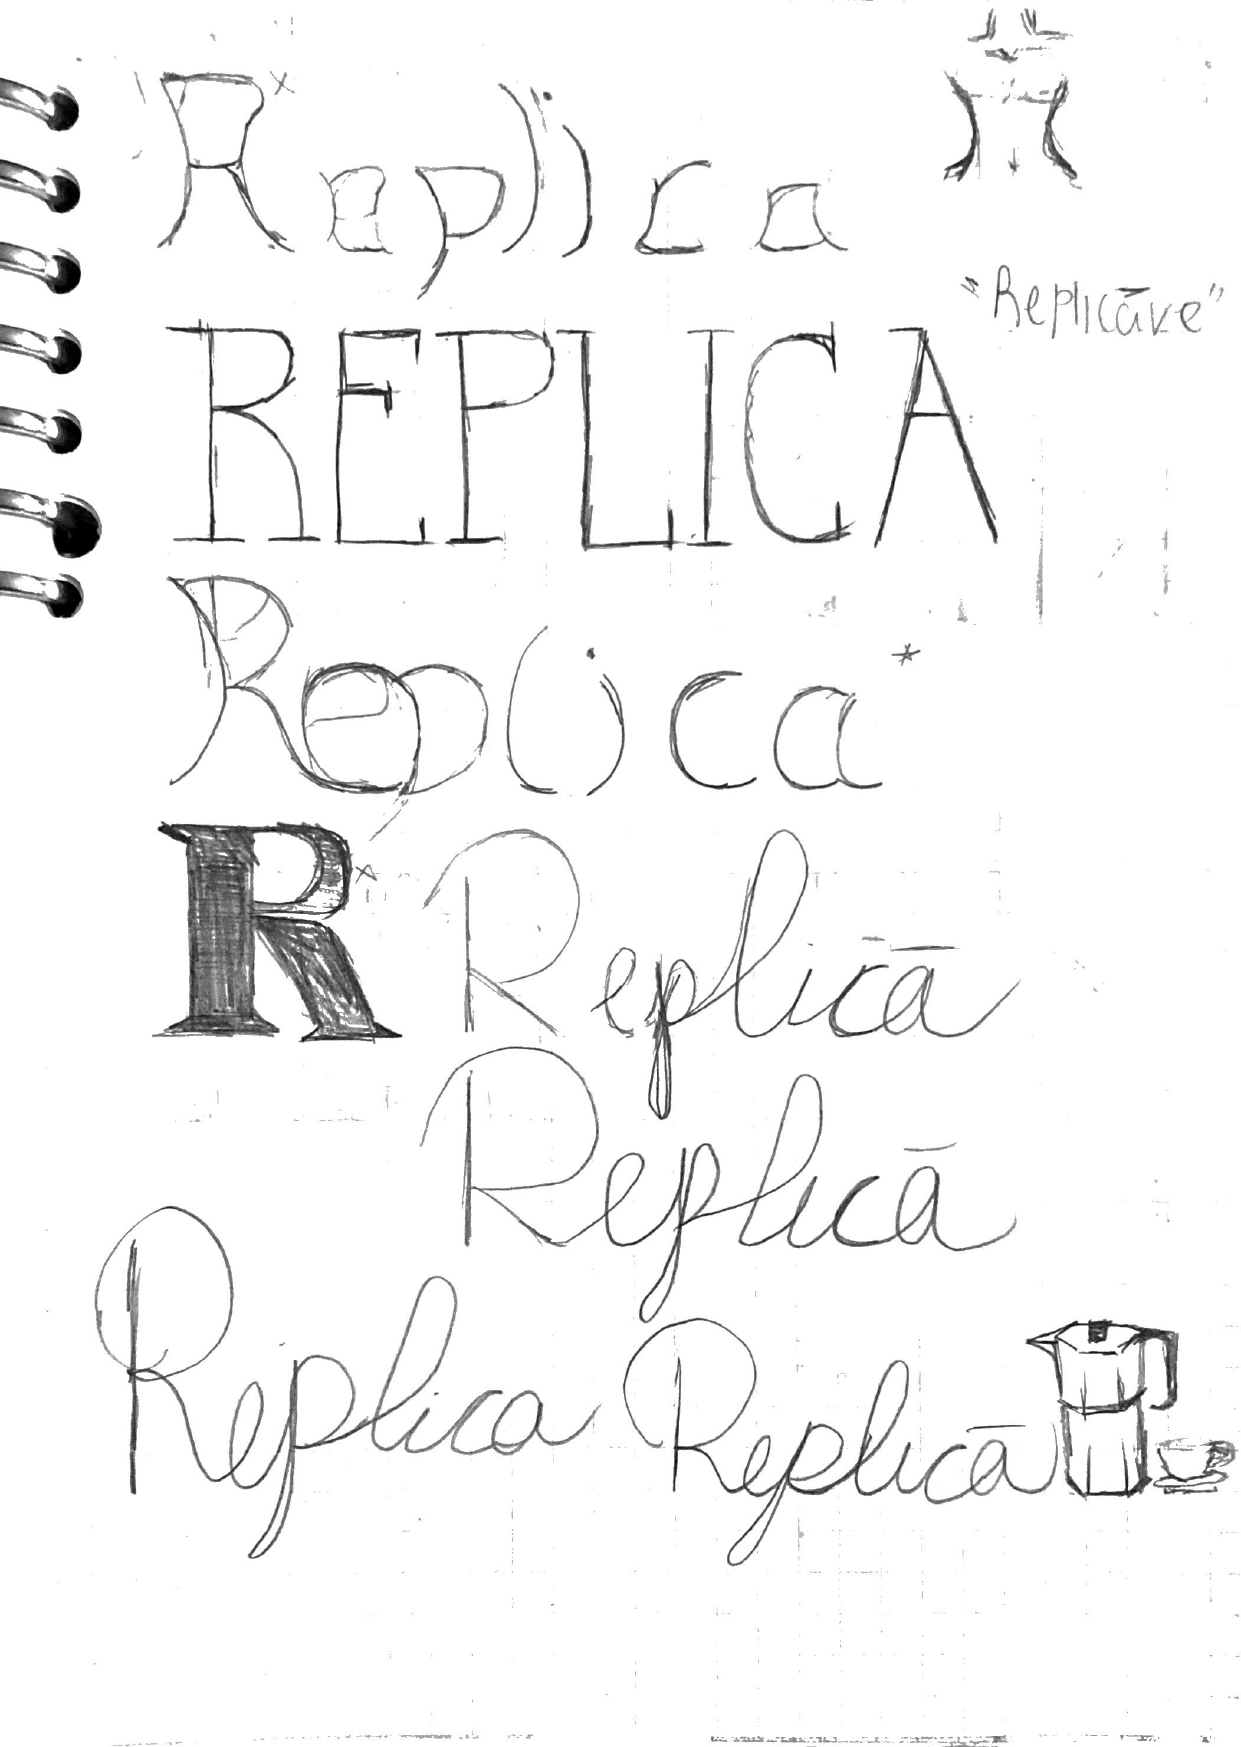 Replica
"Replicāve"
REPLICA
Replica
R Replicā
Replicā
Replica Replicā